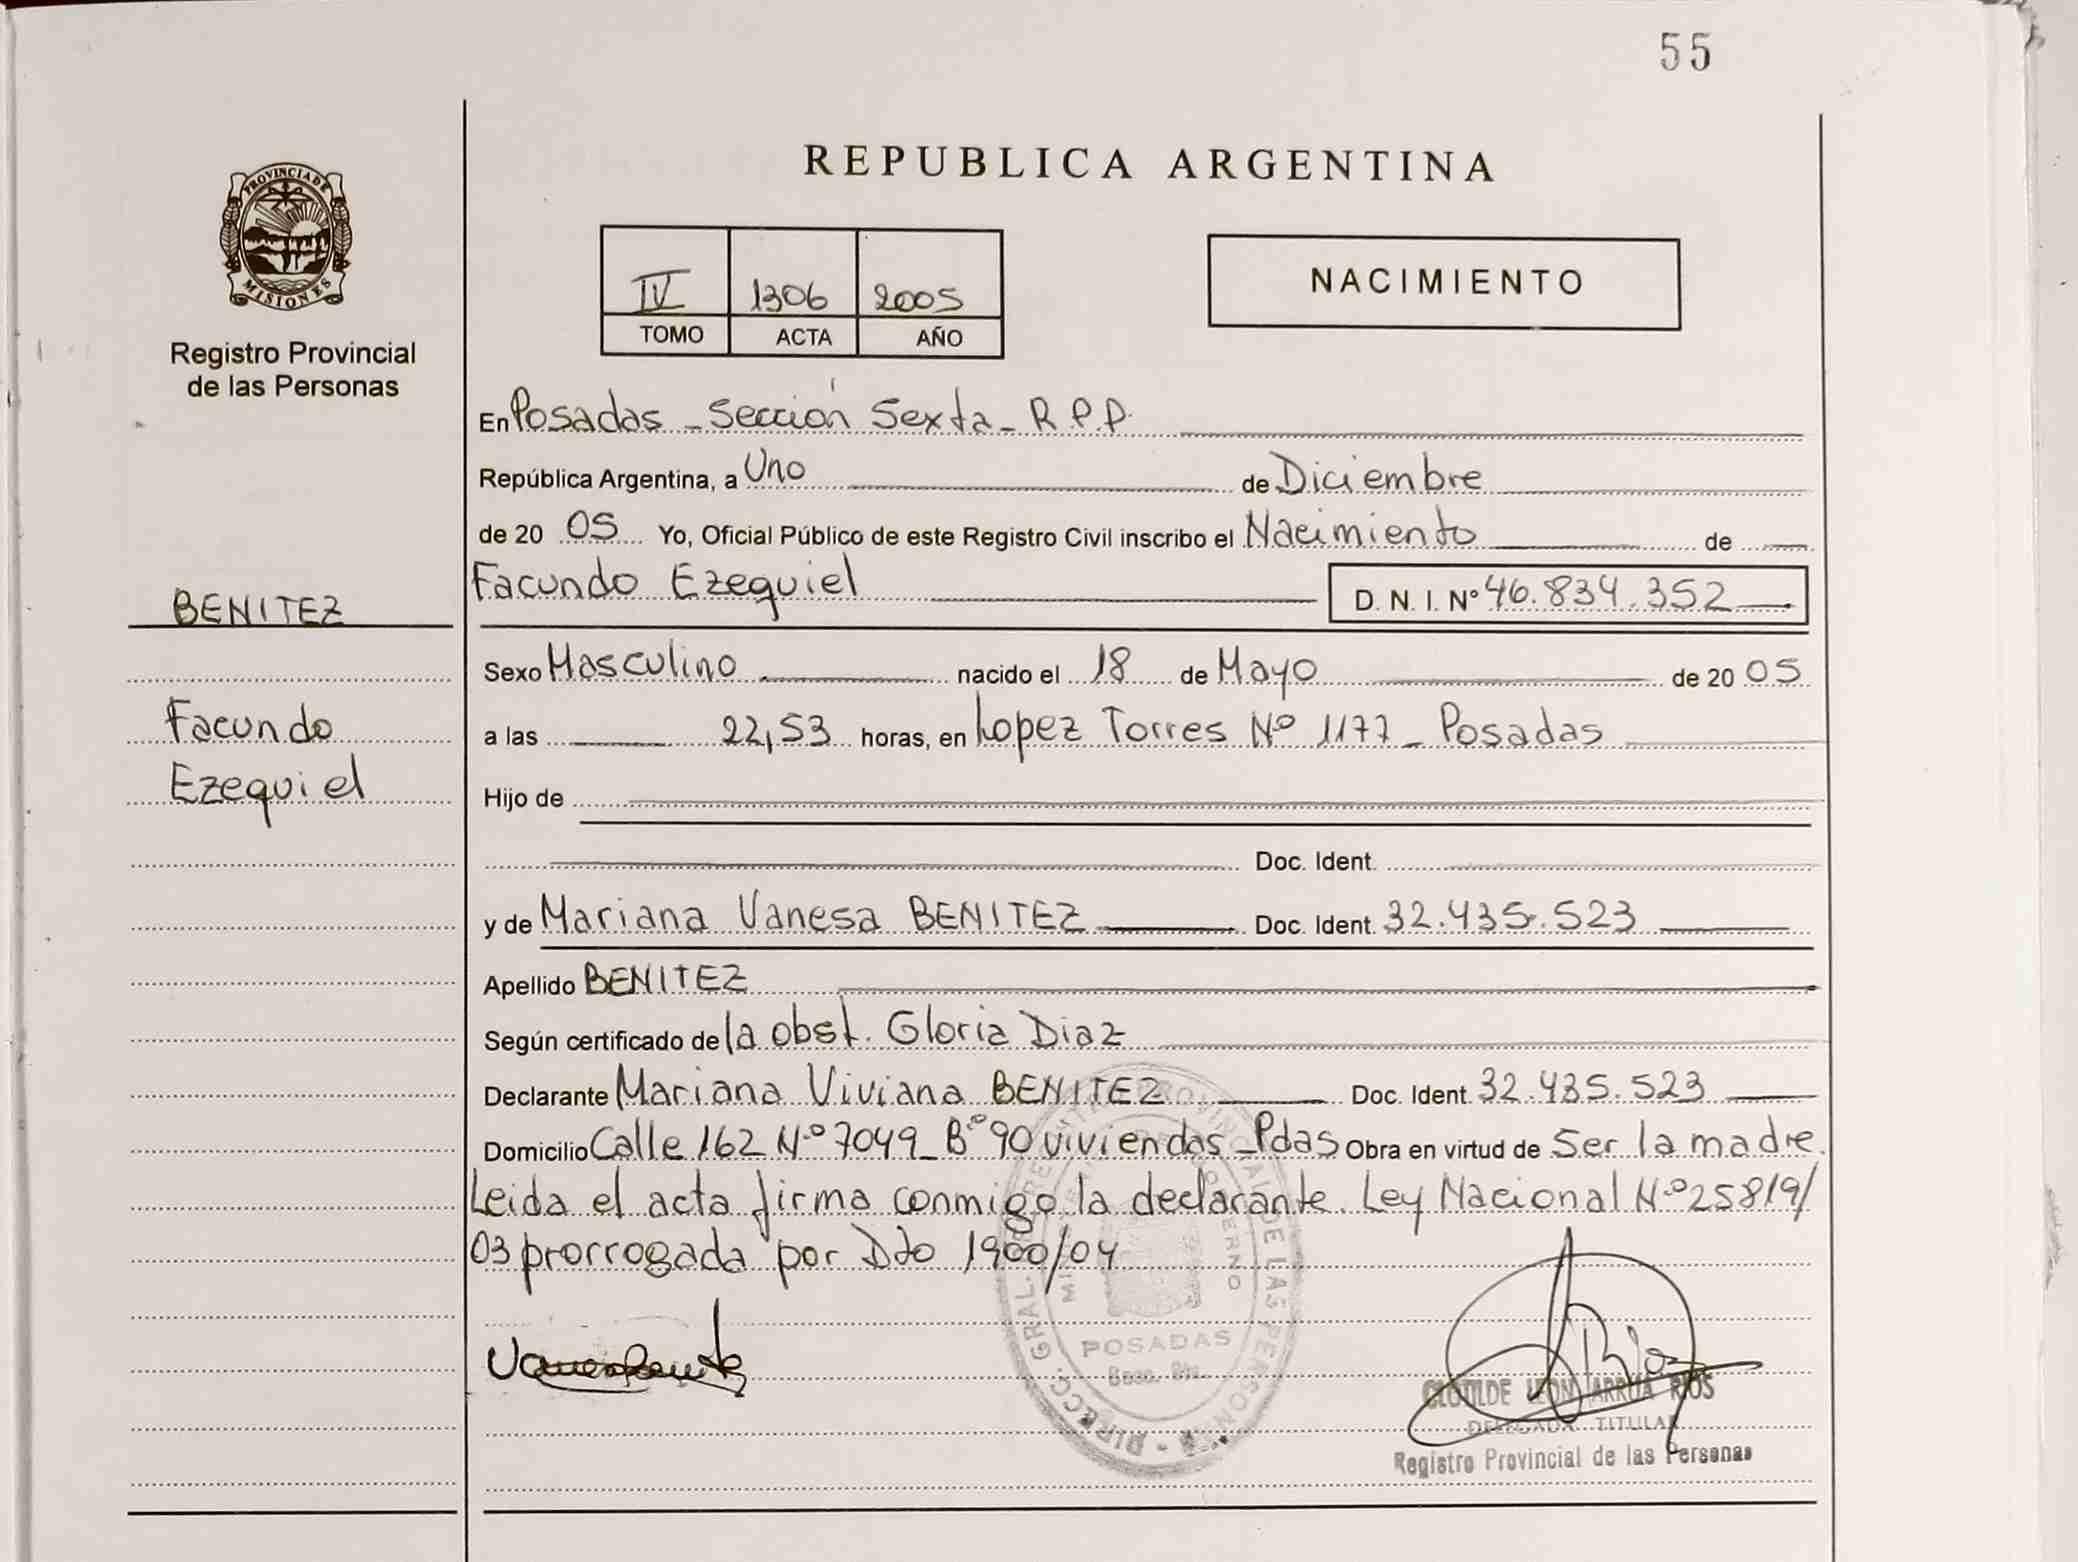 55
REPUBLICA ARGENTINA
PROVINCIA DE
MISIONES
Registro Provincial
de las Personas
IV 1306 2005
TOMO ACTA AÑO
NACIMIENTO
En Posadas - Sección Sexta - R.P.P.
República Argentina, a Uno de Diciembre
de 20 05 Yo, Oficial Público de este Registro Civil inscribo el Nacimiento de
BENITEZ
Facundo Ezequiel D. N. I. Nº 46.834.352
Sexo Masculino nacido el 18 de Mayo de 20 05
Facundo
Ezequiel
a las 22,53 horas, en Lopez Torres Nº 1177 - Posadas
Hijo de
Doc. Ident.
y de Mariana Vanesa BENITEZ Doc. Ident. 32.435.523
Apellido BENITEZ
Según certificado de la obst. Gloria Diaz
Declarante Mariana Viviana BENITEZ Doc. Ident. 32.435.523
Domicilio Calle 162 Nº 7049 - Bº 90 viviendas - Pdas Obra en virtud de Ser la madre.
Leida el acta firma conmigo la declarante. Ley Nacional Nº 25819/
03 prorrogada por Dto 1900/04
POSADAS
CLOTILDE LEON ARRUA RIOS
DELEGADA TITULAR
Registro Provincial de las Personas